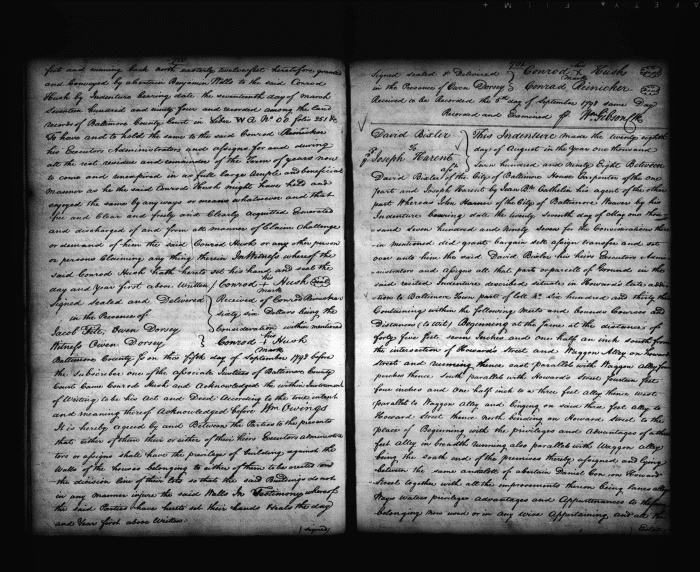 feet and running back north easterly twelve feet heretofore granted
and Conveyed by a certain Benjamin Wells to the said Conrod
Hush by Indenture bearing date the seventeenth day of March
seventeen hundred and ninety four and recorded among the land
records of Baltimore County Court in Liber W.G. No. O.O. folio 251 &c
To have and to hold the same to the said Conrod Reinicker
his Executors Administrators and assigns for and during
all the rest residue and remainder of the Term of years now
to come and unexpired in as full large Ample and beneficial
Manner as he the said Conrod Hush might have held and
enjoyed the same by any ways or means whatsoever and that
free and Clear and freely and Clearly Acquitted Exonerated
and discharged of and from all manner of Claim Challenge
or demand of him the said Conrod Hush or any other person
or persons Claiming any thing therein In Witness whereof the
said Conrod Hush hath hereto set his hand and seal the
day and Year first above written Conrod his + mark Hush
Signed sealed and Delivered Received of Conrod Reinicker
in the Presence of sixty six Dollars being the
Jacob Fite, Owen Dorsey Consideration within mentioned
Witness Owen Dorsey Conrod his + mark Hush
Baltimore County ss on this fifth day of September 1798 before
the Subscriber one of the associate Justices of Baltimore County
Court Came Conrod Hush and Acknowledged the within Instrument
of Writing to be his Act and Deed According to the true intent
and meaning thereof Acknowledged before Wm Owings
It is hereby agreed by and Between the Parties to the presents
that either of them their or either of their Heirs Executors administra
tors or assigns shall have the privilege of building against the
Walls of the houses belonging to either of them to be erected on
the division line of their Lots so that the said Buildings do not
in any manner injure the said Walls In Testimony whereof
the said Parties have hereto set their hands & seals the day
and Year first above Written
signed
Signed sealed & Delivered Conrod his + mark Hush
in the Presence of Owen Dorsey Conrad Reinicker
Received to be Recorded the 5th day of September 1798 same Day
Recorded and Examined Wm Gibson Clk
David Bixler This Indenture Made the twenty eighth
to day of August in the Year one thousand
Joseph Harent Seven hundred and Ninety Eight Between
David Bixler of the City of Baltimore House Carpenter of the one
part and Joseph Harent by Jean Bte Cathelin his agent of the other
part Whereas John Hanner of the City of Baltimore Weaver by his
Indenture bearing date the twenty Seventh day of May one thou
sand Seven hundred and Ninety Seven for the Considerations there
in mentioned did grant bargain sell assign transfer and set
over unto him the said David Bixler his heirs Executors Admi
nistrators and assigns all that part or parcel of Ground in the
said recited Indenture described situate in Howards late addi
tion to Baltimore Town part of lott No. Six hundred and thirty three
Containing within the following Meets and bounds Courses and
Distances (to wit) Beginning at the same at the distance of
forty five feet seven Inches and one half an inch South from
the intersection of Howards Street and Waggon Alley on Howard
Street and running thence east parallel with Waggon Alley four
perches thence South parallel with Howards Street fourteen feet
four inches and one half inch to a three feet alley thence west
parallel to Waggon alley and binging on said three foot alley to
Howard Street thence north binding on Howard Street to the
place of Beginning with the privilege and Advantages of a three
feet alley in breadth running also parallel with Waggon alley
being the south end of the premises thereby assigned and lying
between the same and lott of a certain Daniel Con on Howard
Street together with all the improvements thereon being Lanes alleys
Ways waters privileges Advantages and Appurtenances to the same
belonging now used or in any wise Appertaining and all the